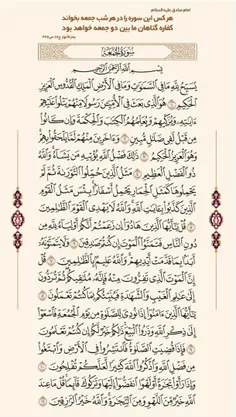 امام صادق علیه السلام
هر کس این سوره را در هر شب جمعه بخواند
کفاره گناهان ما بین دو جمعه خواهد بود
سُورَةُ الجُمُعَة
بِسْمِ اللَّهِ الرَّحْمَٰنِ الرَّحِيمِ
يُسَبِّحُ لِلَّهِ مَا فِي السَّمَاوَاتِ وَمَا فِي الْأَرْضِ الْمَلِكِ الْقُدُّوسِ الْعَزِيزِ
الْحَكِيمِ ١ هُوَ الَّذِي بَعَثَ فِي الْأُمِّيِّينَ رَسُولًا مِنْهُمْ يَتْلُو عَلَيْهِمْ
آيَاتِهِ وَيُزَكِّيهِمْ وَيُعَلِّمُهُمُ الْكِتَابَ وَالْحِكْمَةَ وَإِنْ كَانُوا
مِنْ قَبْلُ لَفِي ضَلَالٍ مُبِينٍ ٢ وَآخَرِينَ مِنْهُمْ لَمَّا يَلْحَقُوا بِهِمْ
وَهُوَ الْعَزِيزُ الْحَكِيمُ ٣ ذَٰلِكَ فَضْلُ اللَّهِ يُؤْتِيهِ مَنْ يَشَاءُ وَاللَّهُ
ذُو الْفَضْلِ الْعَظِيمِ ٤ مَثَلُ الَّذِينَ حُمِّلُوا التَّوْرَاةَ ثُمَّ لَمْ
يَحْمِلُوهَا كَمَثَلِ الْحِمَارِ يَحْمِلُ أَسْفَارًا بِئْسَ مَثَلُ الْقَوْمِ
الَّذِينَ كَذَّبُوا بِآيَاتِ اللَّهِ وَاللَّهُ لَا يَهْدِي الْقَوْمَ الظَّالِمِينَ ٥
قُلْ يَا أَيُّهَا الَّذِينَ هَادُوا إِنْ زَعَمْتُمْ أَنَّكُمْ أَوْلِيَاءُ لِلَّهِ مِنْ
دُونِ النَّاسِ فَتَمَنَّوُا الْمَوْتَ إِنْ كُنْتُمْ صَادِقِينَ ٦ وَلَا يَتَمَنَّوْنَهُ
أَبَدًا بِمَا قَدَّمَتْ أَيْدِيهِمْ وَاللَّهُ عَلِيمٌ بِالظَّالِمِينَ ٧ قُلْ
إِنَّ الْمَوْتَ الَّذِي تَفِرُّونَ مِنْهُ فَإِنَّهُ مُلَاقِيكُمْ ثُمَّ تُرَدُّونَ
إِلَىٰ عَالِمِ الْغَيْبِ وَالشَّهَادَةِ فَيُنَبِّئُكُمْ بِمَا كُنْتُمْ تَعْمَلُونَ ٨
يَا أَيُّهَا الَّذِينَ آمَنُوا إِذَا نُودِيَ لِلصَّلَاةِ مِنْ يَوْمِ الْجُمُعَةِ فَاسْعَوْا
إِلَىٰ ذِكْرِ اللَّهِ وَذَرُوا الْبَيْعَ ذَٰلِكُمْ خَيْرٌ لَكُمْ إِنْ كُنْتُمْ تَعْلَمُونَ
٩ فَإِذَا قُضِيَتِ الصَّلَاةُ فَانْتَشِرُوا فِي الْأَرْضِ وَابْتَغُوا
مِنْ فَضْلِ اللَّهِ وَاذْكُرُوا اللَّهَ كَثِيرًا لَعَلَّكُمْ تُفْلِحُونَ ١٠
وَإِذَا رَأَوْا تِجَارَةً أَوْ لَهْوًا انْفَضُّوا إِلَيْهَا وَتَرَكُوكَ قَائِمًا قُلْ مَا عِنْدَ
اللَّهِ خَيْرٌ مِنَ اللَّهْوِ وَمِنَ التِّجَارَةِ وَاللَّهُ خَيْرُ الرَّازِقِينَ ١١